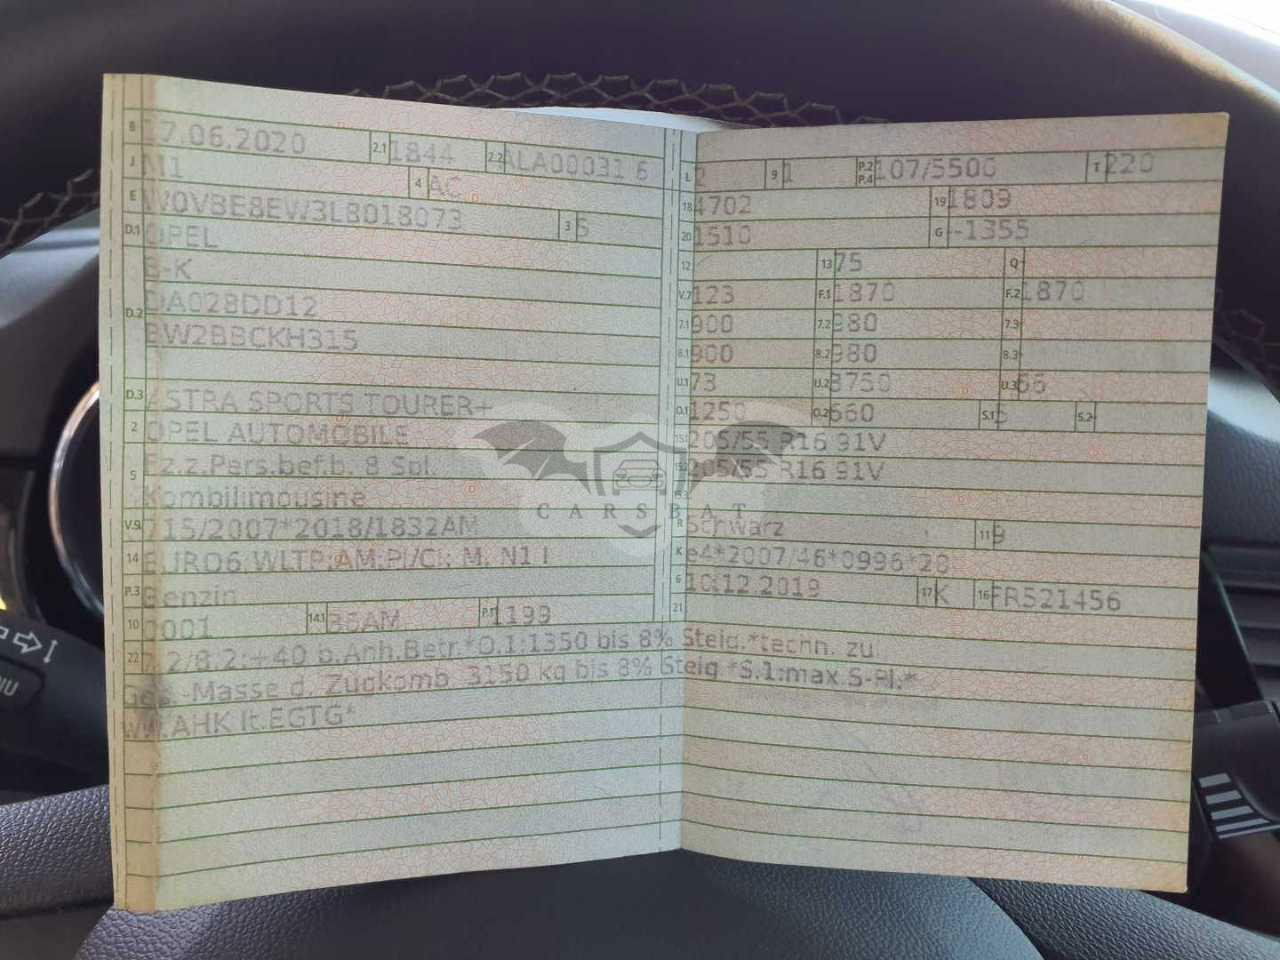 B 17.06.2020 2.1 1844 2.2 ALA00031 6
J M1 4 AC
E W0VBE8EW3LB018073 3 6
D.1 OPEL
B-K
D.2 DA028DD12
BW2BBCKH315
D.3 ASTRA SPORTS TOURER+
2 OPEL AUTOMOBILE
5 Fz.z.Pers.bef.b. 8 Spl.
Kombilimousine
V.9 715/2007*2018/1832AM
14 EURO6;WLTP;AM;PI/CI; M, N1 I
P.3 Benzin
10 0001 14.1 36AM P.1 1199
L 2 9 1 P.2 P.4 107/5500 T 220
18 4702 19 1809
20 1510 G -1355
12 13 75 Q
V.7 123 F.1 1870 F.2 1870
7.1 900 7.2 980 7.3
8.1 900 8.2 980 8.3
U.1 73 U.2 3750 U.3 66
O.1 1250 O.2 660 S.1 S.2
15.1 205/55 R16 91V
15.2 205/55 R16 91V
R Schwarz 11 9
K e4*2007/46*0996*28
6 10.12.2019 17 K 16 FR521456
21
22 7.2/8.2:+40 b.Anh.Betr.*O.1:1350 bis 8% Steig.*techn. zul.
Ges.-Masse d. Zugkomb. 3150 kg bis 8% Steig.*S.1:max.S-Pl.*
AHK lt.EGTG*
CARSBAT